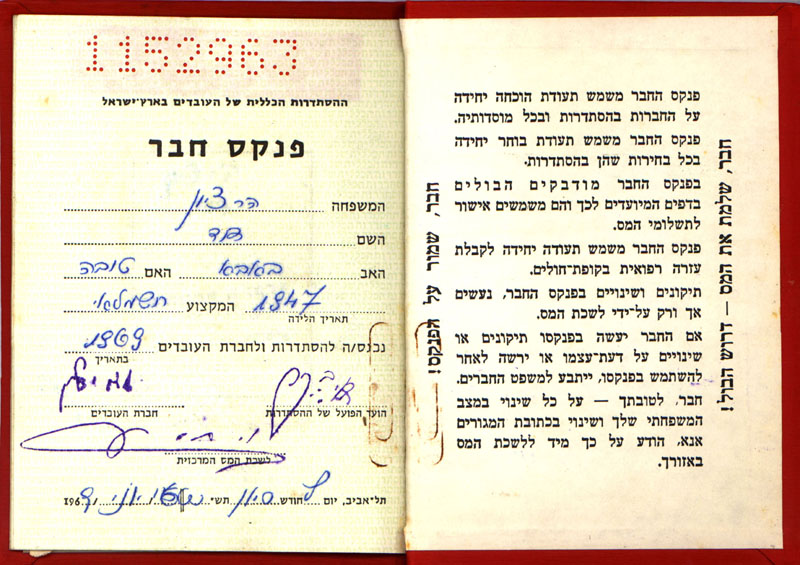 1152963
ההסתדרות הכללית של העובדים בארץ-ישראל
פנקס חבר
המשפחה הר ציון
השם דוד
האב האם טובה
1947 המקצוע חשמלאי
תאריך הלידה
נכנס/ה להסתדרות ולחברת העובדים 1969
בתאריך
הועד הפועל של ההסתדרות חברת העובדים
לשכת המס המרכזית
תל-אביב, יום ל' חודש סיון תש" יוני 1969
פנקס החבר משמש תעודת הוכחה יחידה
על החברות בהסתדרות ובכל מוסדותיה.
פנקס החבר משמש תעודת בוחר יחידה
בכל בחירות שהן בהסתדרות.
בפנקס החבר מודבקים הבולים
בדפים המיועדים לכך והם משמשים אישור
לתשלומי המס.
פנקס החבר משמש תעודה יחידה לקבלת
עזרה רפואית בקופת-חולים.
תיקונים ושינויים בפנקס החבר, נעשים
אך ורק על-ידי לשכת המס.
אם החבר יעשה בפנקסו תיקונים או
שינויים על דעת-עצמו או ירשה לאחר
להשתמש בפנקסו, ייתבע למשפט החברים.
חבר, לטובתך — על כל שינוי במצב
המשפחתי שלך ושינוי בכתובת המגורים
אנא, הודע על כך מיד ללשכת המס
באזורך.
חבר, שמור על הפנקס!
חבר, שלמת את המס — דרוש הבול!